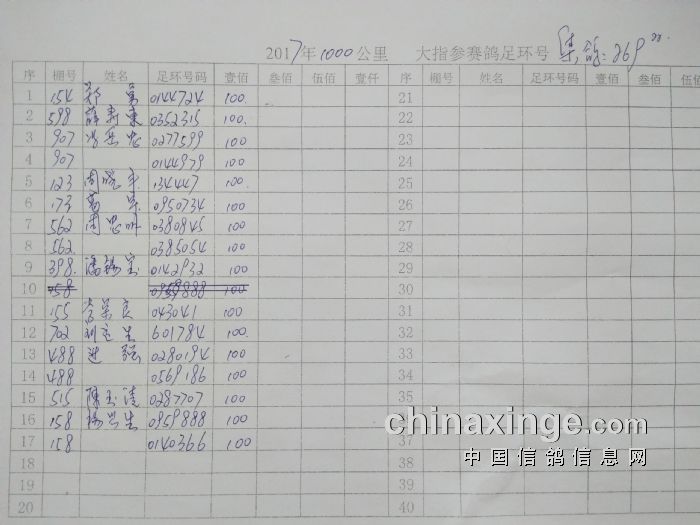 2017年1000公里 大指参赛鸽足环号 集鸽:269
序 棚号 姓名 足环号码 壹佰 叁佰 伍佰 壹仟 序 棚号 姓名 足环号码 壹佰 叁佰 伍佰
1 154 郑 0144724 100. 21
2 598 薛寿东 0352315 100. 22
3 907 冯岳忠 0277599 100 23
4 907 0144979 100 24
5 123 周晓 134447 100. 25
6 173 0950734 100 26
7 562 周忠 0380845 100 27
8 562. 0385054 100 28
9 398. 潘锡宝 0142932 100 29
10 158 0959888 100 30
11 155 李荣良 043041 100 31
12 702 刘宝生 601784 100. 32
13 488 进强 0280194 100 33
14 488 0569186 100 34
15 515 陈玉清 0287707 100 35
16 158 杨兴生 0959888 100
17 158 0140366 100 37
18 38
19 39
20 40
chinaxinge.com
中国信鸽信息网